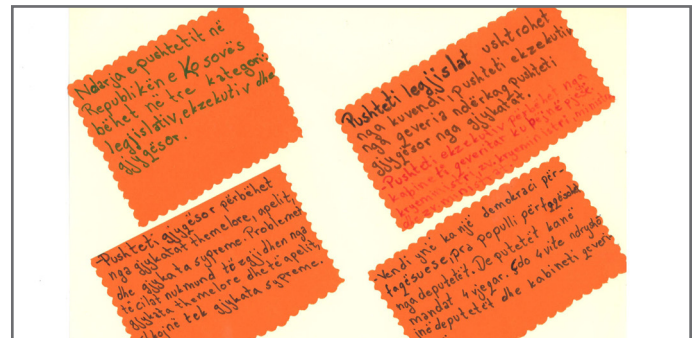 Ndarja e pushtetit në
Republikën e Kosovës
bëhet në tre kategori:
legjislativ, ekzekutiv dhe
gjyqësor.
Pushteti legjislat ushtrohet
nga kuvendi, pushteti ekzekutiv
nga qeveria ndërkaq pushteti
gjyqësor nga gjykatat.
Pushteti ekzekutiv përbëhet nga
kabineti qeveritar ku bëjnë pjesë:
kryeministri, zv. kryeministri,
Pushteti gjyqësor përbëhet
nga gjykatat themelore, apelit,
dhe gjykata supreme. Problemet
të cilat nuk mund të zgjidhen nga
gjykata themelore dhe të apelit,
tek gjykata supreme.
Vendi ynë ka një demokraci për-
faqësuese, pra populli përfaqësohet
nga deputetët. Deputetët kanë
mandat 4 vjeçar. Çdo 4 vite ndrydhe
jnë deputetët dhe kabineti qeveri